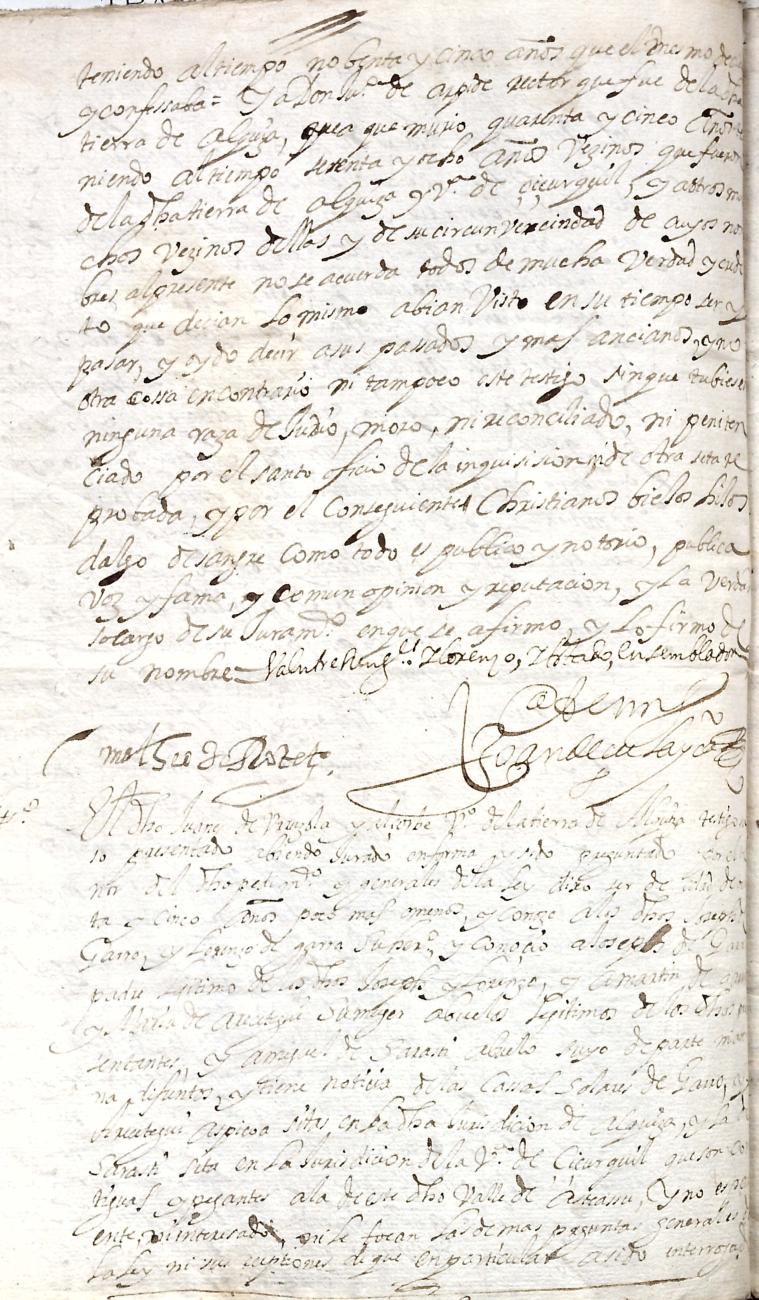 teniendo al tiempo nobenta y cinco años que el mesmo
y confessaba = Y a Don Ju.º de arpide retor que fue de la
tierra de alquiza, que a que murio quarenta y cinco años
niendo al tiempo setenta y ocho años Vezinos que fueron
de la dha tierra de alquiza y V.ª de cicurquil, y a otros mu
chos Vezinos dellas y de su circunvezindad de cuyos no
bres al presente no se acuerda todos de mucha Verdad y credi
to que decian lo mismo abian Visto en su tiempo ser y
pasar, y oydo decir a sus passados y mas ancianos, y no
otra cossa en contrario ni tampoco este testigo sin que tubiesen
ninguna raza de Judio, moro, ni reconciliado, ni peniten
ciado por el santo oficio de la inquisision, ni de otra seta re
probada, y por el Conseguiente Christianos biejos hijos
dalgo de sangre Como todo es publico y notorio, publica
Voz y fama, y comun opinion y reputacion, y la Verdad
so cargo de su Juram.to en que se afirmo, y lo firmo de
su nombre = Lorenzo,
matheo de
Ante mi
El dho Juan de V.º de la tierra de Alquiza testigo
so presentado abiendo Jurado en forma y sido preguntado
nor del dho pedim.to y generales de la ley dixo ser de hedad de
ta y cinco años poco mas o menos, y conoze a los dhos Joseph
Garro, y Lorenzo de garro su her.º y conocio a Joseph de Garro
padre legitimo de los dhos Joseph y Lorenzo, y a martin de
y Maria de su muger abuelos legitimos de los dhos pre
sentantes, y a miguel de Sarasti abuelo suyo de parte mater
na difuntos, y tiene noticia de las Cassas Solares de Garro, y
sitas en la dha Jurisdicion de alquiza, y la de
Sarasti sita en la Jurisdicion de la V.ª de Cicurquil que son con
tiguas y pegantes a la de este dho Valle de Asteasu, y no es pari
ente, ni interesado, ni le tocan las demas preguntas generales de
la ley ni sus eceptiones de que en particular a sido interrogado